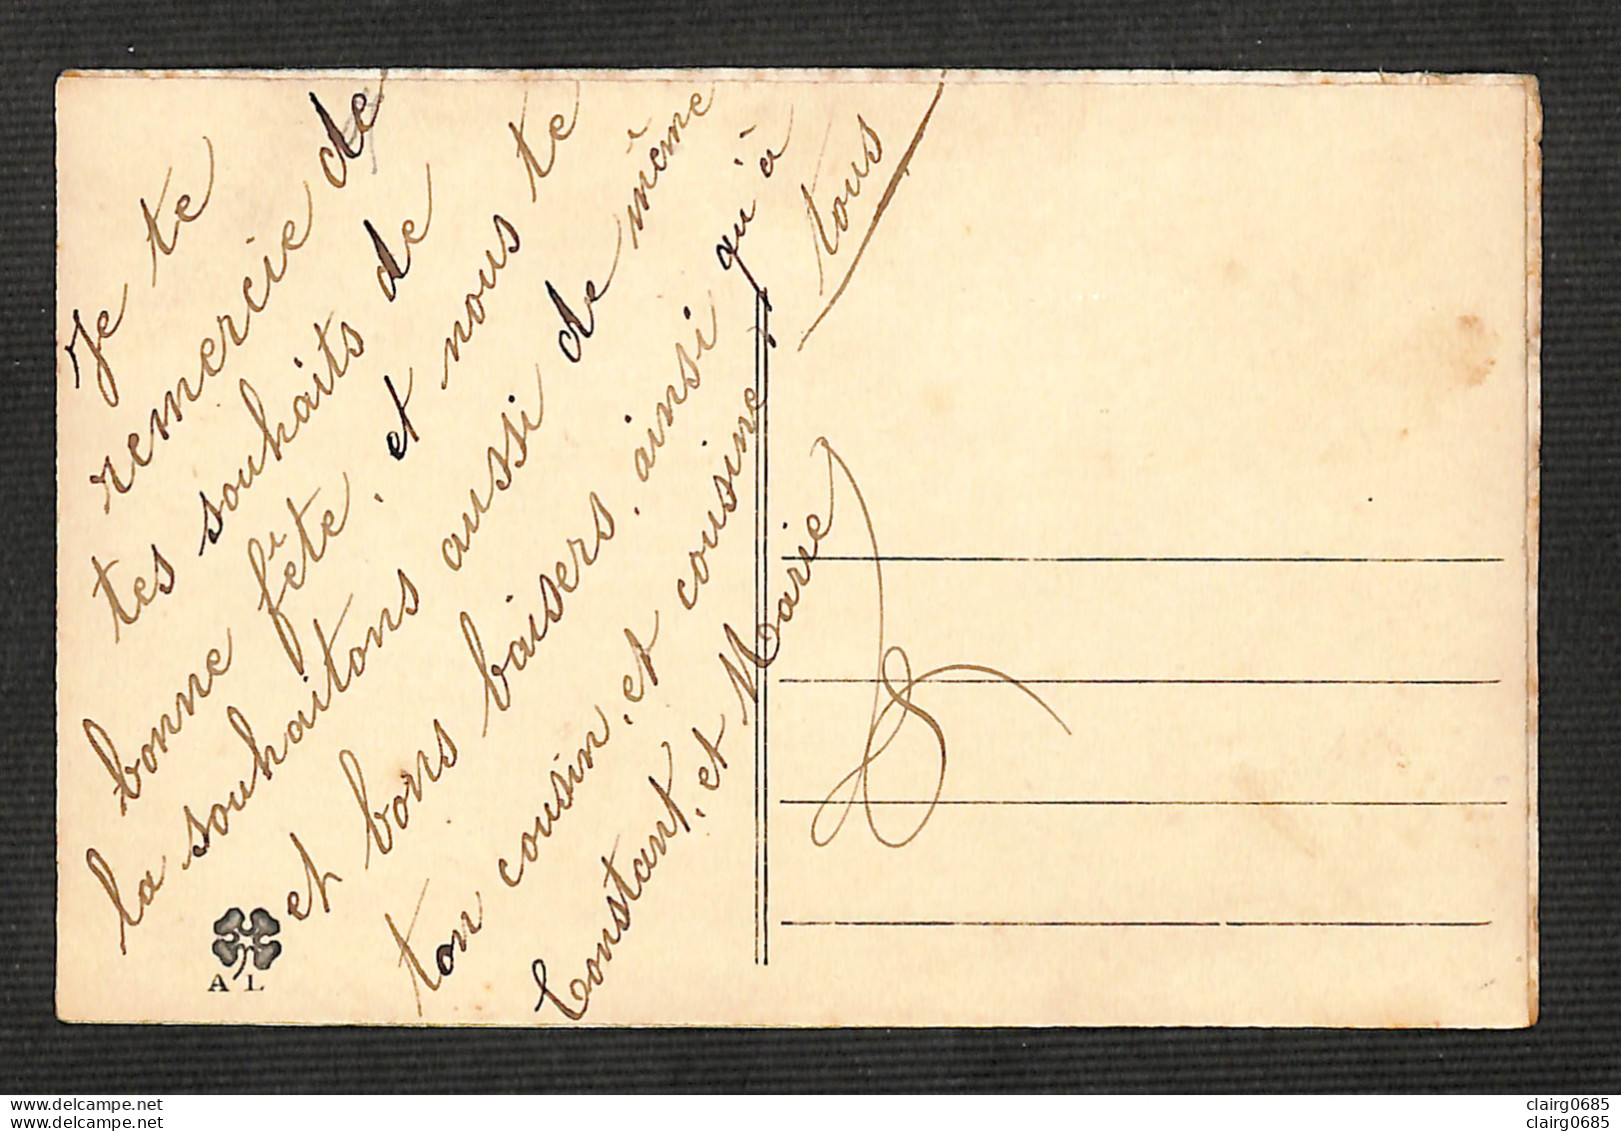 Je te
remercie de
tes souhaits de
bonne fête, et nous te
la souhaitons aussi de même
et bons baisers, ainsi qu'à
tous
ton cousin, et cousine
Constant, et Marie
A L
www.delcampe.net
clairg0685
clairg0685